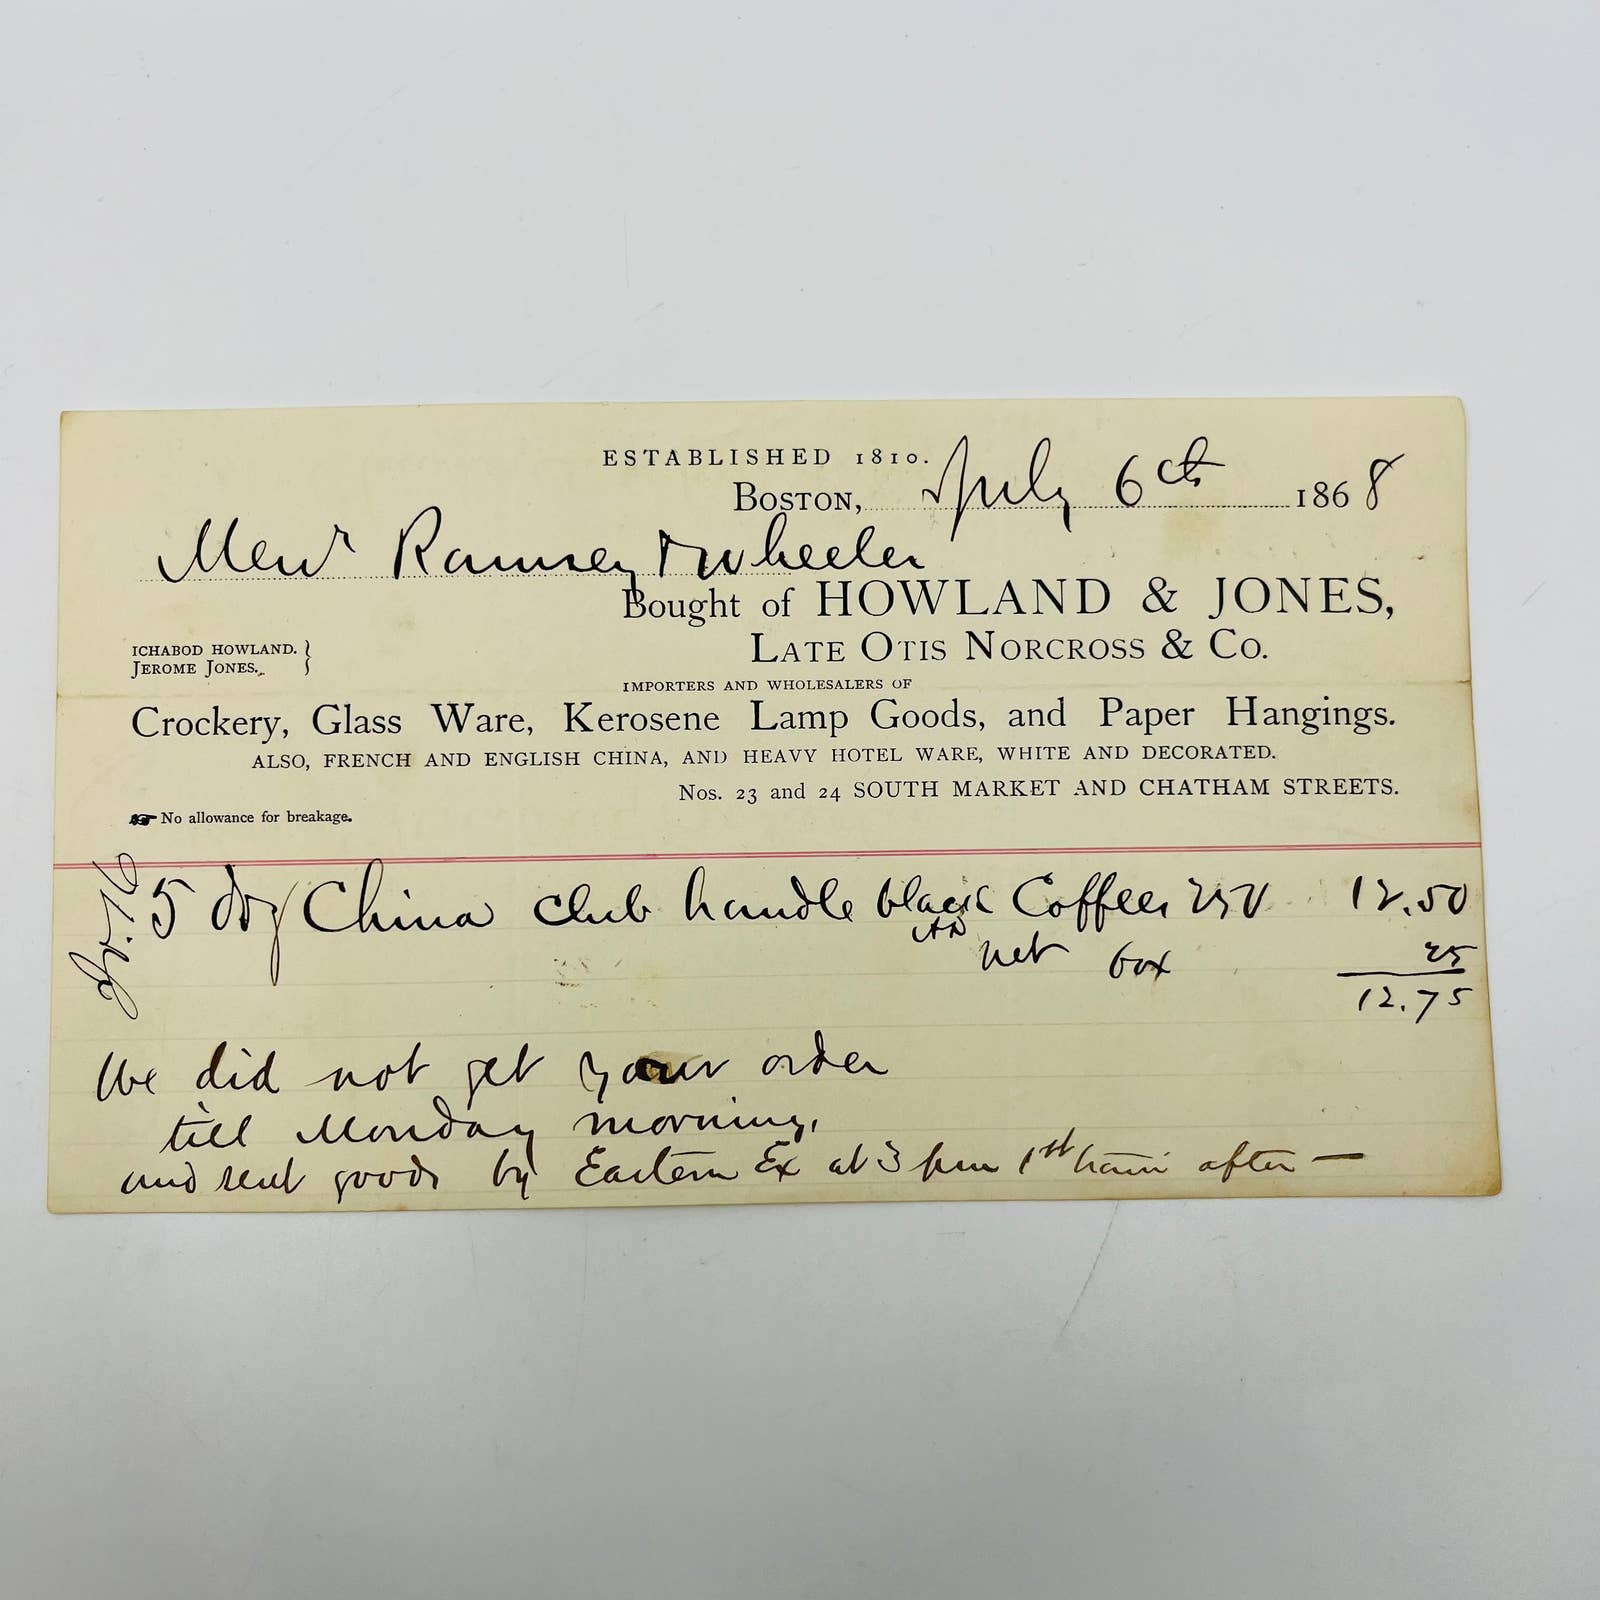 ESTABLISHED 1810.
BOSTON, July 6th 1868
Messrs Ramsey & Wheeler
Bought of HOWLAND & JONES,
ICHABOD HOWLAND. }
JEROME JONES. }
LATE OTIS NORCROSS & CO.
IMPORTERS AND WHOLESALERS OF
Crockery, Glass Ware, Kerosene Lamp Goods, and Paper Hangings.
ALSO, FRENCH AND ENGLISH CHINA, AND HEAVY HOTEL WARE, WHITE AND DECORATED.
Nos. 23 and 24 SOUTH MARKET AND CHATHAM STREETS.
☛ No allowance for breakage.
5 doz China club handle black Coffees 250 12.50
net box 25
12.75
We did not get your order
till Monday morning,
and sent goods by Eastern Ex at 3 pm 1st train after —